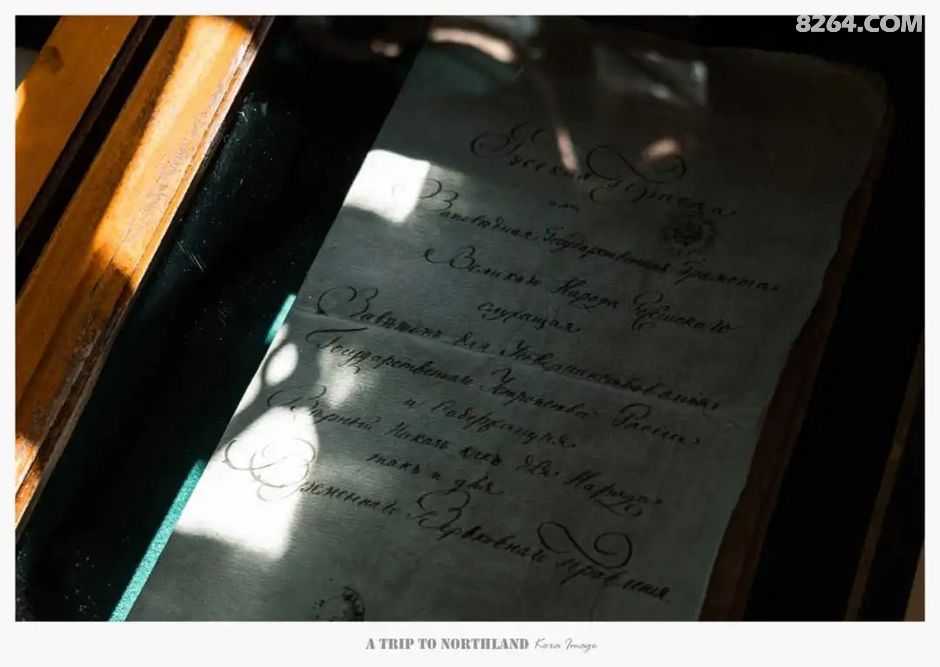 8264.COM
Русская Правда
или
Заповѣдная Государственная Грамота
Великаго Народа Россійскаго
служащая
Завѣтомъ для Усовершенствованія
Государственнаго Устройства Россіи
и Содержащая
Вѣрный Наказъ какъ для Народа,
такъ и для
Временнаго Верховнаго Правленія.
A TRIP TO NORTHLAND Kora Image